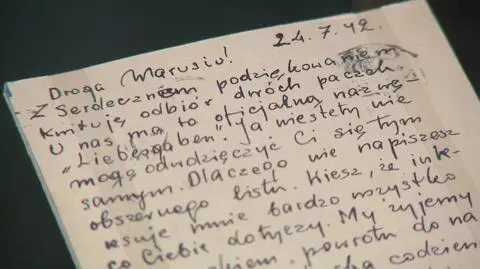 24.7.42
Droga Marusiu!
Z Serdecznem podziękowaniem
kwituję odbiór dwóch paczek.
U nas ma to oficjalną nazwę -
"Liebesgaben". Ja niestety nie
mogę odwdzięczyć Ci się tym
samym. Dlaczego nie napiszesz
obszernego listu. Wiesz, że inte-
resuje mnie bardzo wszystko
co Ciebie dotyczy. My żyjemy
powrotu do na
codzien